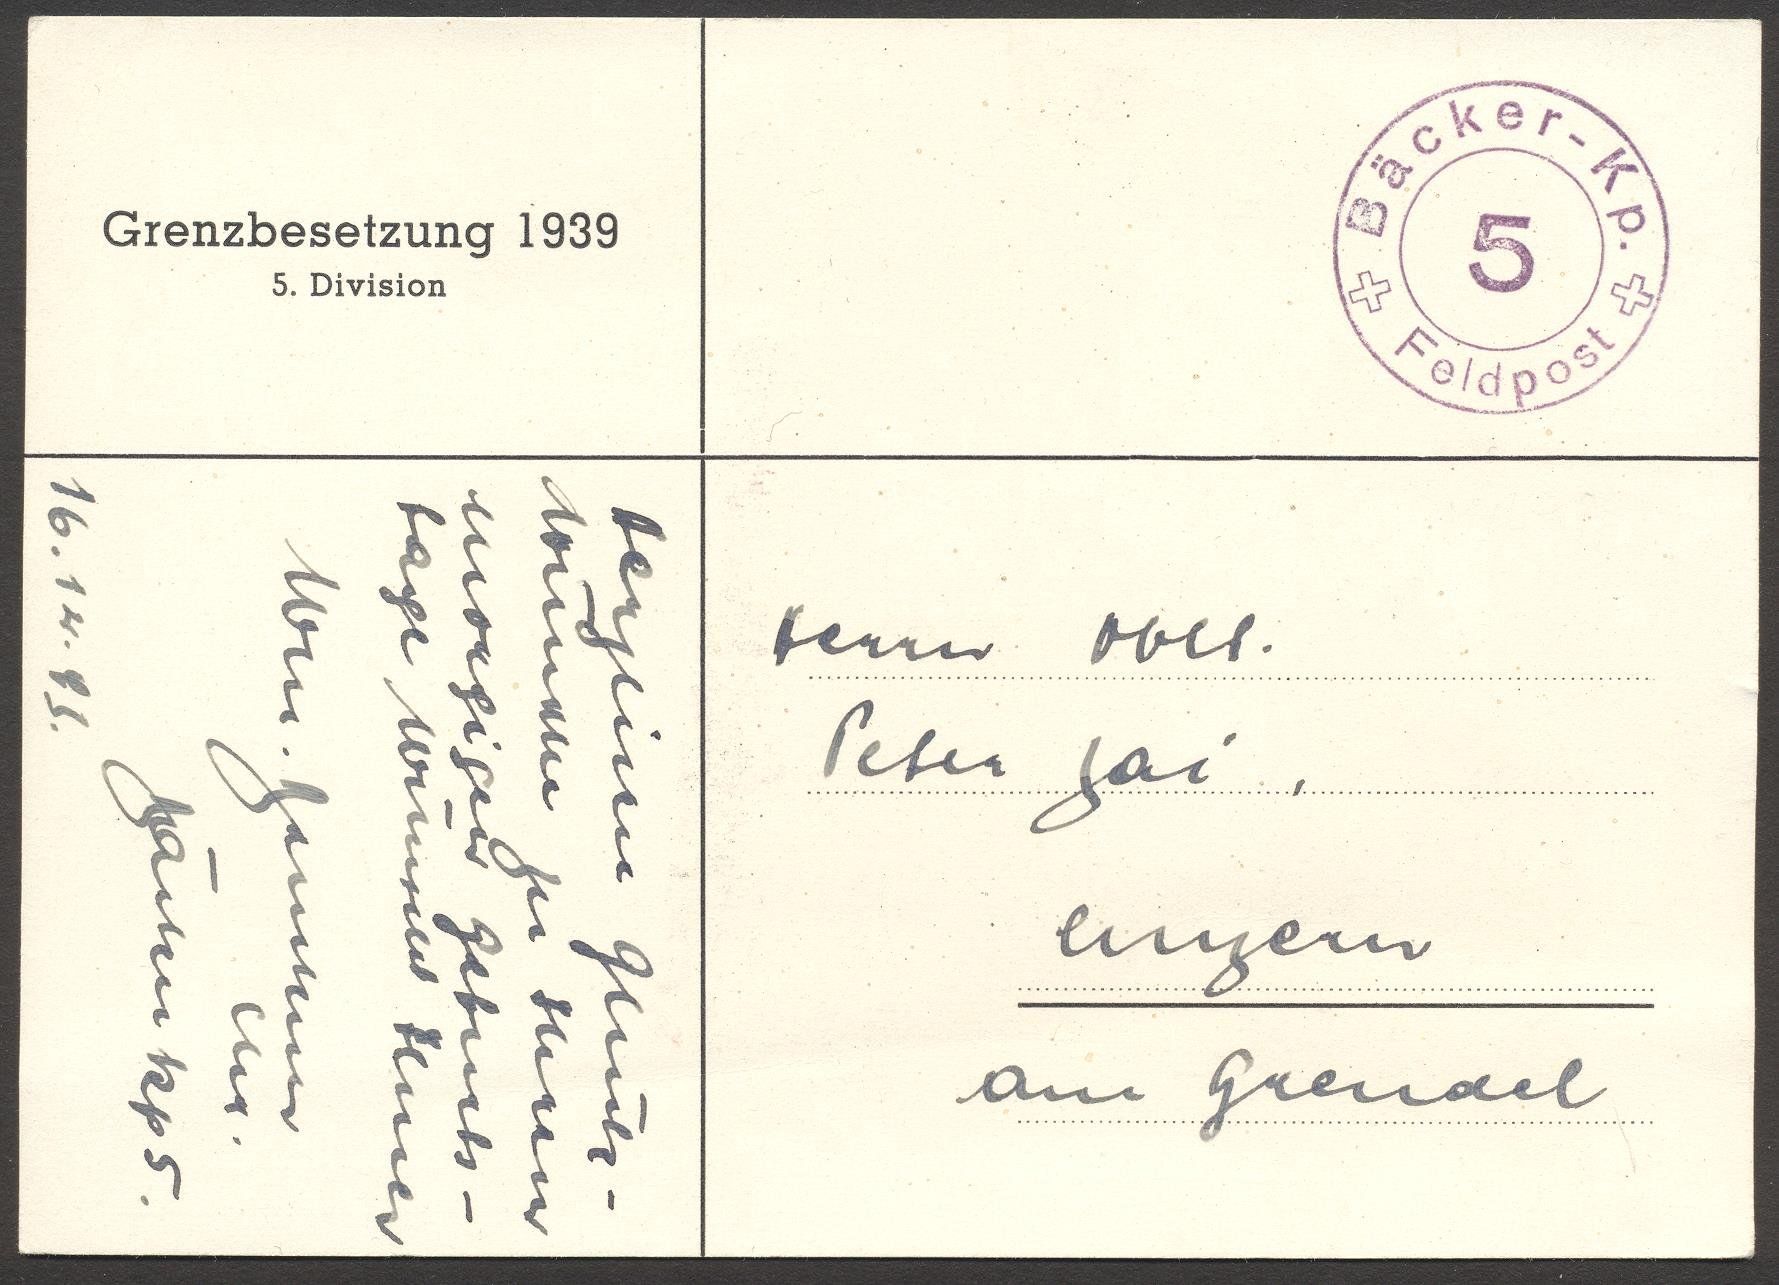 Grenzbesetzung 1939
5. Division
Bäcker-Kp.
5
Feldpost
Herzlichen Glück-
wünsche zu Ihrem
morgigen Geburts-
tage wünscht Ihnen
Wm.
Bäcker Kp 5.
16. 12. 39.
Herrn Oblt.
Peter Zai,
Luzern
am Grendel